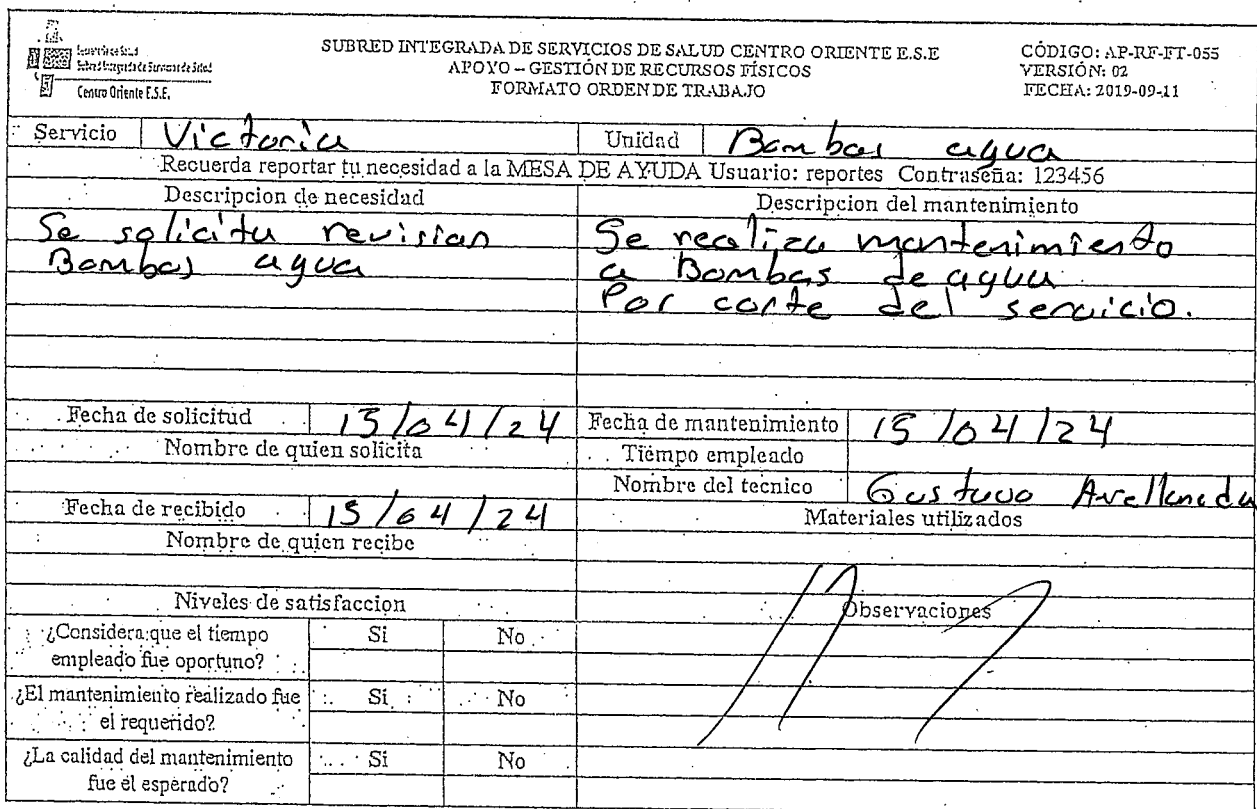 Centro Oriente E.S.E.
SUBRED INTEGRADA DE SERVICIOS DE SALUD CENTRO ORIENTE E.S.E
APOYO – GESTIÓN DE RECURSOS FÍSICOS
FORMATO ORDEN DE TRABAJO
CÓDIGO: AP-RF-FT-055
VERSIÓN: 02
FECHA: 2019-09-11
Servicio Victoria Unidad Bombas agua
Recuerda reportar tu necesidad a la MESA DE AYUDA Usuario: reportes Contraseña: 123456
Descripcion de necesidad
Se solicita revision
Bombas agua
Descripcion del mantenimiento
Se realiza mantenimiento
a Bombas de agua
Por corte del servicio.
Fecha de solicitud 15/04/24
Nombre de quien solicita
Fecha de recibido 15/04/24
Nombre de quien recibe
Fecha de mantenimiento 15/04/24
Tiempo empleado
Nombre del tecnico Gustavo Avellaneda
Materiales utilizados
Observaciones
Niveles de satisfaccion
¿Considera que el tiempo Si No
empleado fue oportuno?
¿El mantenimiento realizado fue Si No
el requerido?
¿La calidad del mantenimiento Si No
fue el esperado?